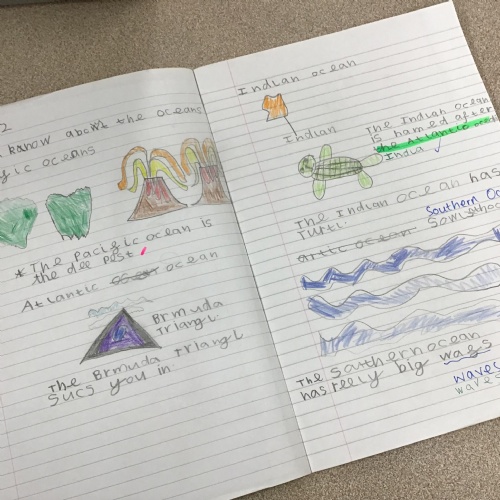 2
know aboWt the oceans
ific oceans
* The Pacific ocean is
the dee Pest
Atlantic ocean
Brmuda
Triangl.
The Brmuda Triangl
Sucs you in
Indian ocean
Indian
The Indian Ocean
is named after
India ✓
The Indian ocean has
Turtl.
artic ocean
Southern Oc
The southern ocean
has reely big wavs
waves
waves